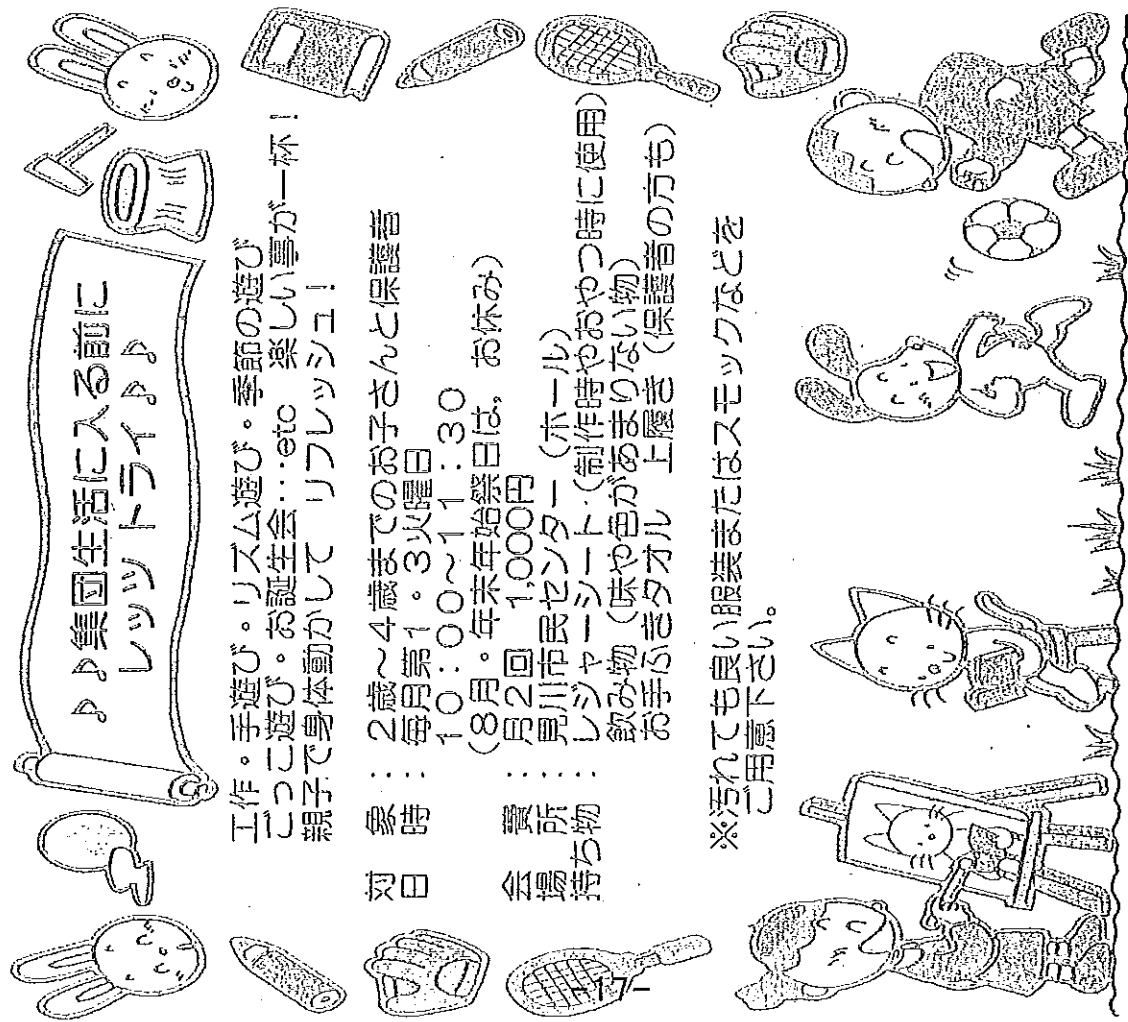 ♪♪集団生活に入る前に
レッツ トライ♪♪♪
工作・手遊び・リズム遊び・季節の遊び
ごっこ遊び・お誕生会…etc 楽しい事が一杯！
親子で身体動かして リフレッシュ！
対 象 ： 2歳～4歳までのお子さんと保護者
日 時 ： 毎月第1・3火曜日
10：00～11：30
(8月・年末年始祭日は, お休み)
会 費 ： 月2回 1,000円
場 所 ： 見川市民センター (ホール)
持ち物 ： レジャーシート・(制作時やおやつ時に使用)
飲み物 (味や色があまりない物)
お手ふきタオル 上履き (保護者の方も)
※汚れても良い服装またはスモックなどを
ご用意下さい。
-17-